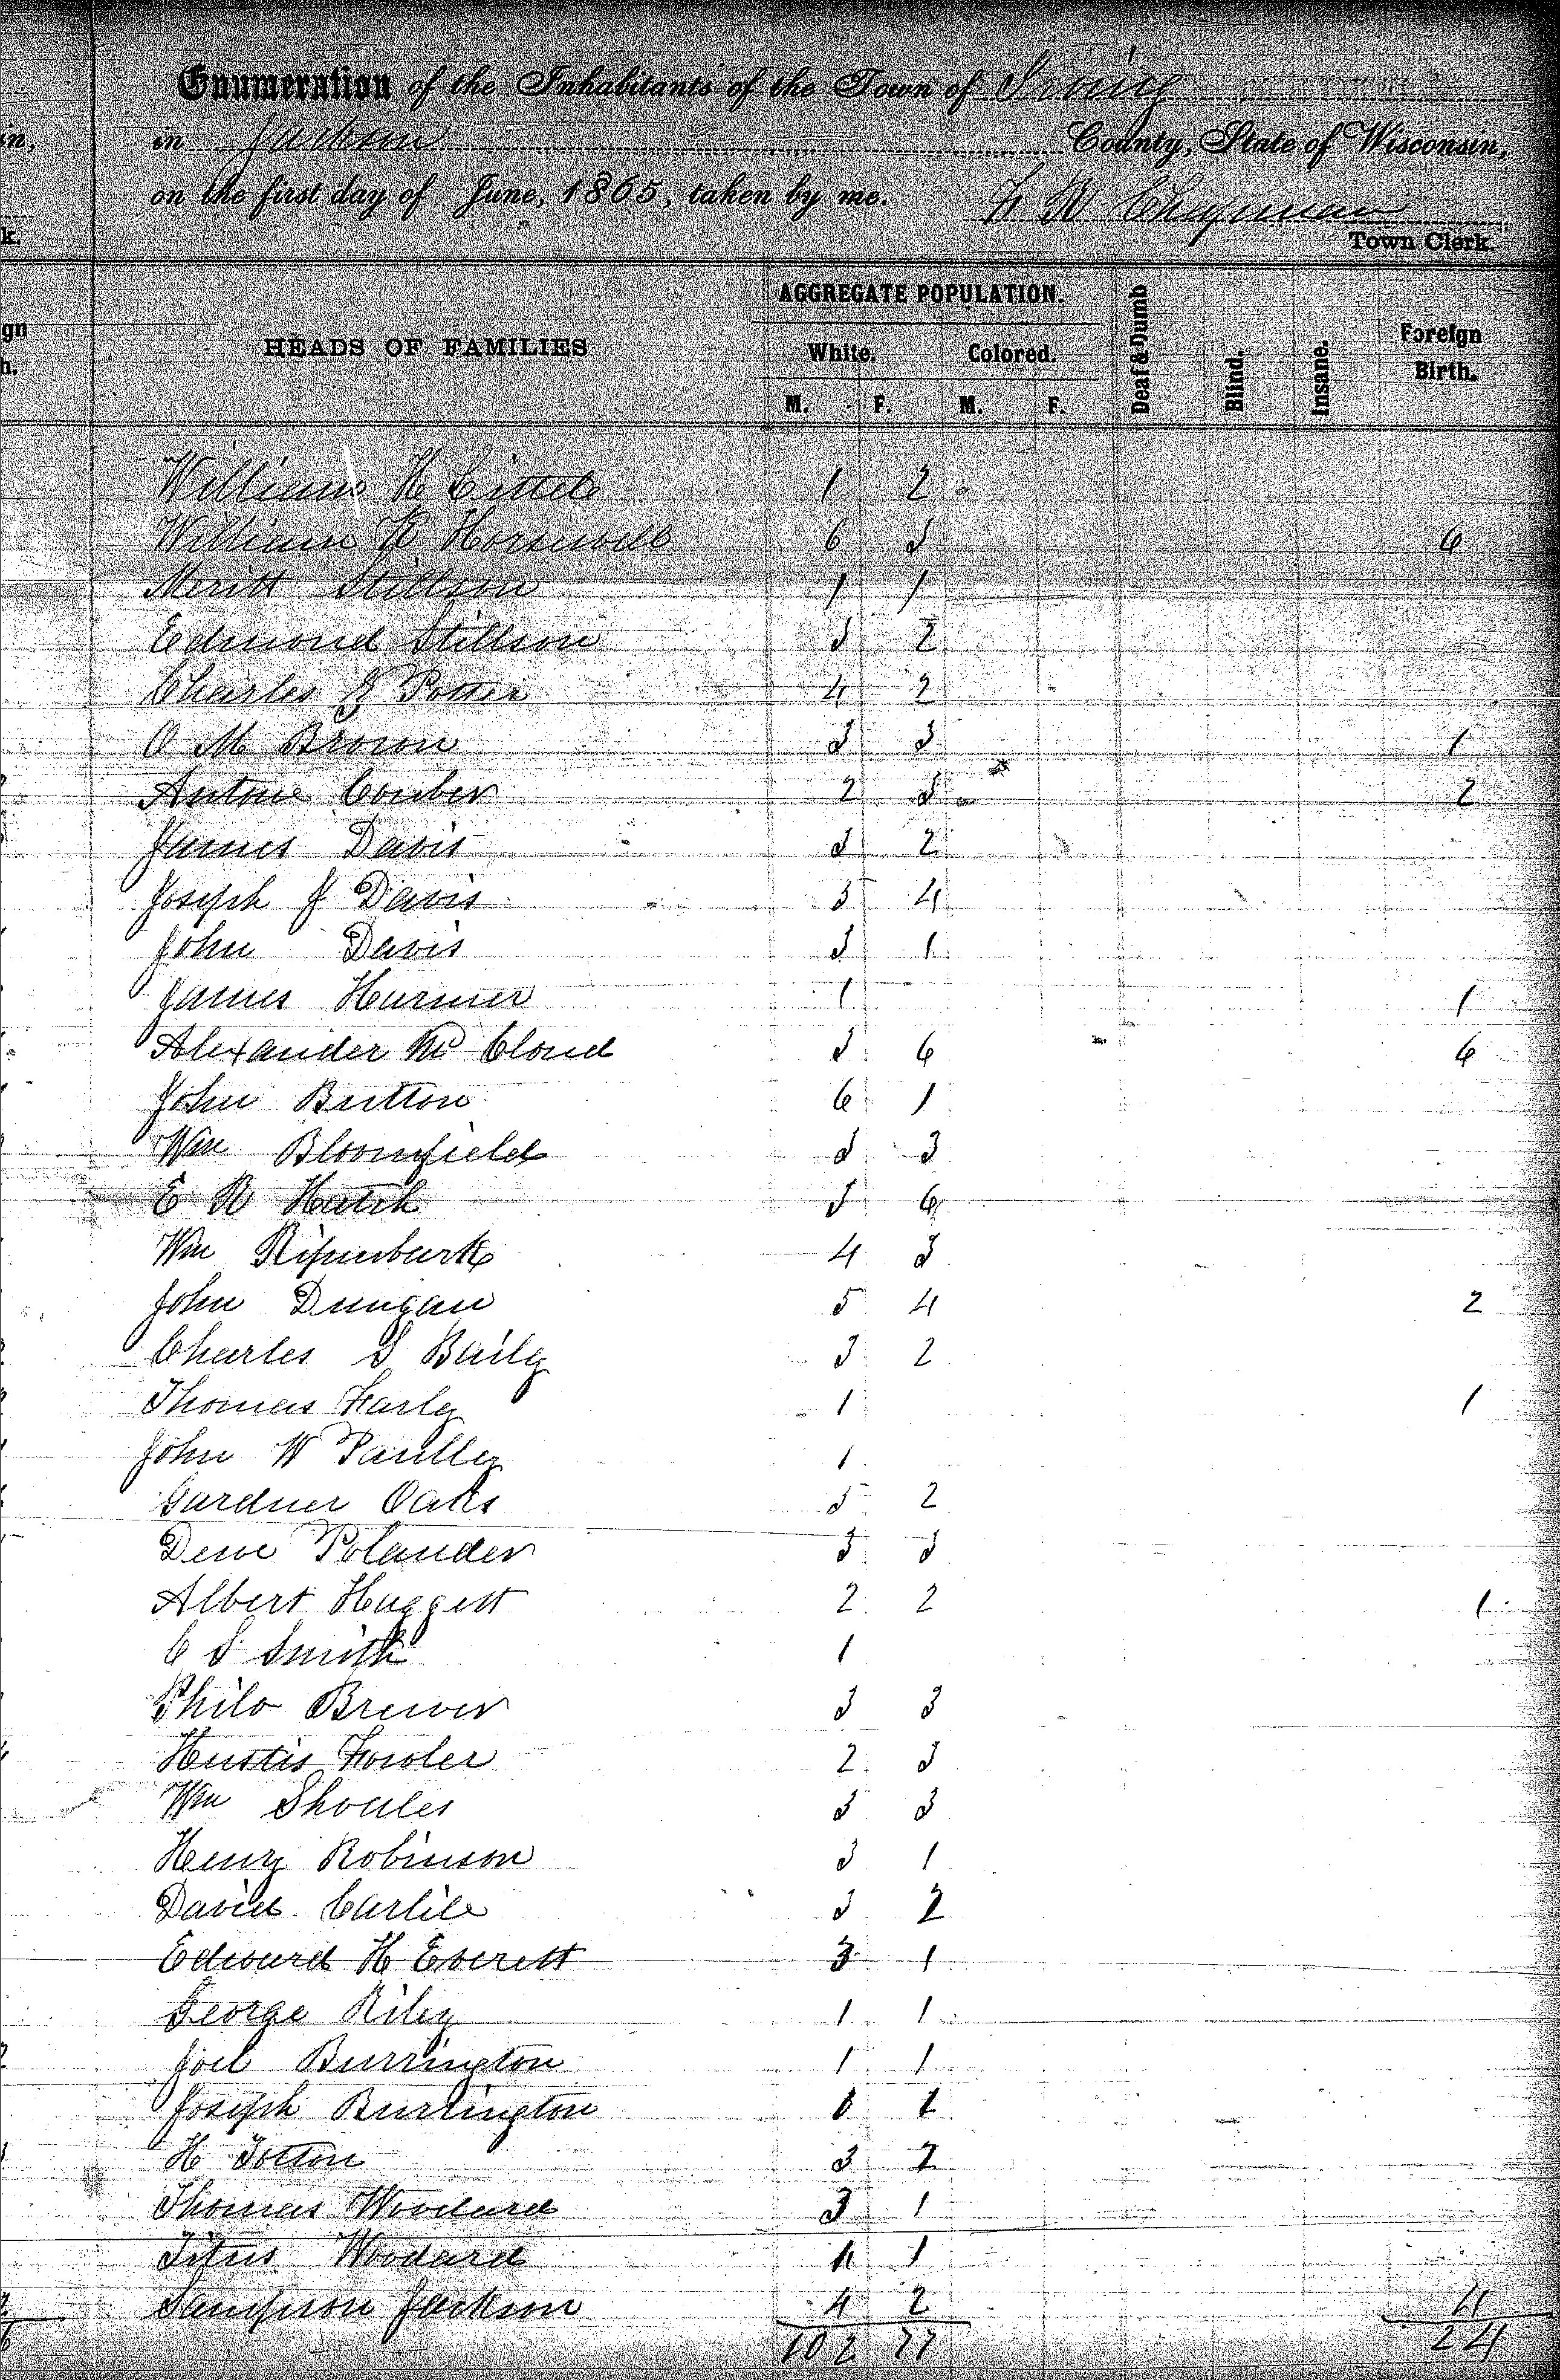 Enumeration of the Inhabitants of the Town of Irving
in Jackson County, State of Wisconsin,
on the first day of June, 1865, taken by me.
Town Clerk.
HEADS OF FAMILIES
AGGREGATE POPULATION.
White. Colored.
M. F. M. F.
Deaf & Dumb
Blind.
Insane.
Foreign
Birth.
William H 1 2
William Horswill 6 3 6
Meritt Stillson 1 1
Edmond Stillson 3 2
Charles Potter 4 2
O M Brown 3 3 1
Antone Couber 2 3 2
James Davis 3 2
Joseph J Davis 5 4
John Davis 3 1
James Harmer 1 1
Alexander Mc Cloud 3 6 6
John Button 6 1
Wm Bloomfield 3 3
E Hatch 3 6
Wm 4 3
John Dungan 5 4 2
Charles S Baily 3 2
Thomas Farley 1 1
John W Paulley 1
Gardner Oaks 5 2
Polander 3 3
Albert Huggett 2 2 1
C S Smith 1
Philo Brewer 3 3
Hustis Fowler 2 3
Wm Shoules 3 3
Henry Robinson 3 1
David Carlile 3 2
Edward H Everett 3 1
George Riley 1 1
Joel Burrington 1 1
Joseph Burrington 1 1
H Totton 3 2
Thomas Woodard 3 1
Titus Woodard 1
Sampson Jackson 4 2 4
102 77 24